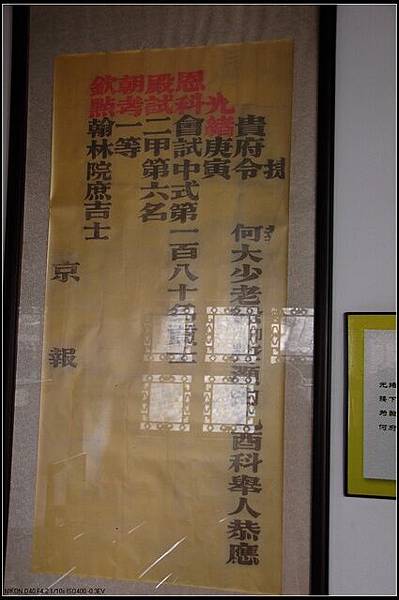 捷
貴府令 何大少老 酉科舉人恭應
光緒庚寅
恩科會試中式第一百八十名
殿試二甲第六名
朝考一等
欽點翰林院庶吉士
京報
光緒
接下
何府
NIKON D40 F4.2 1/10s ISO400 -0.3EV